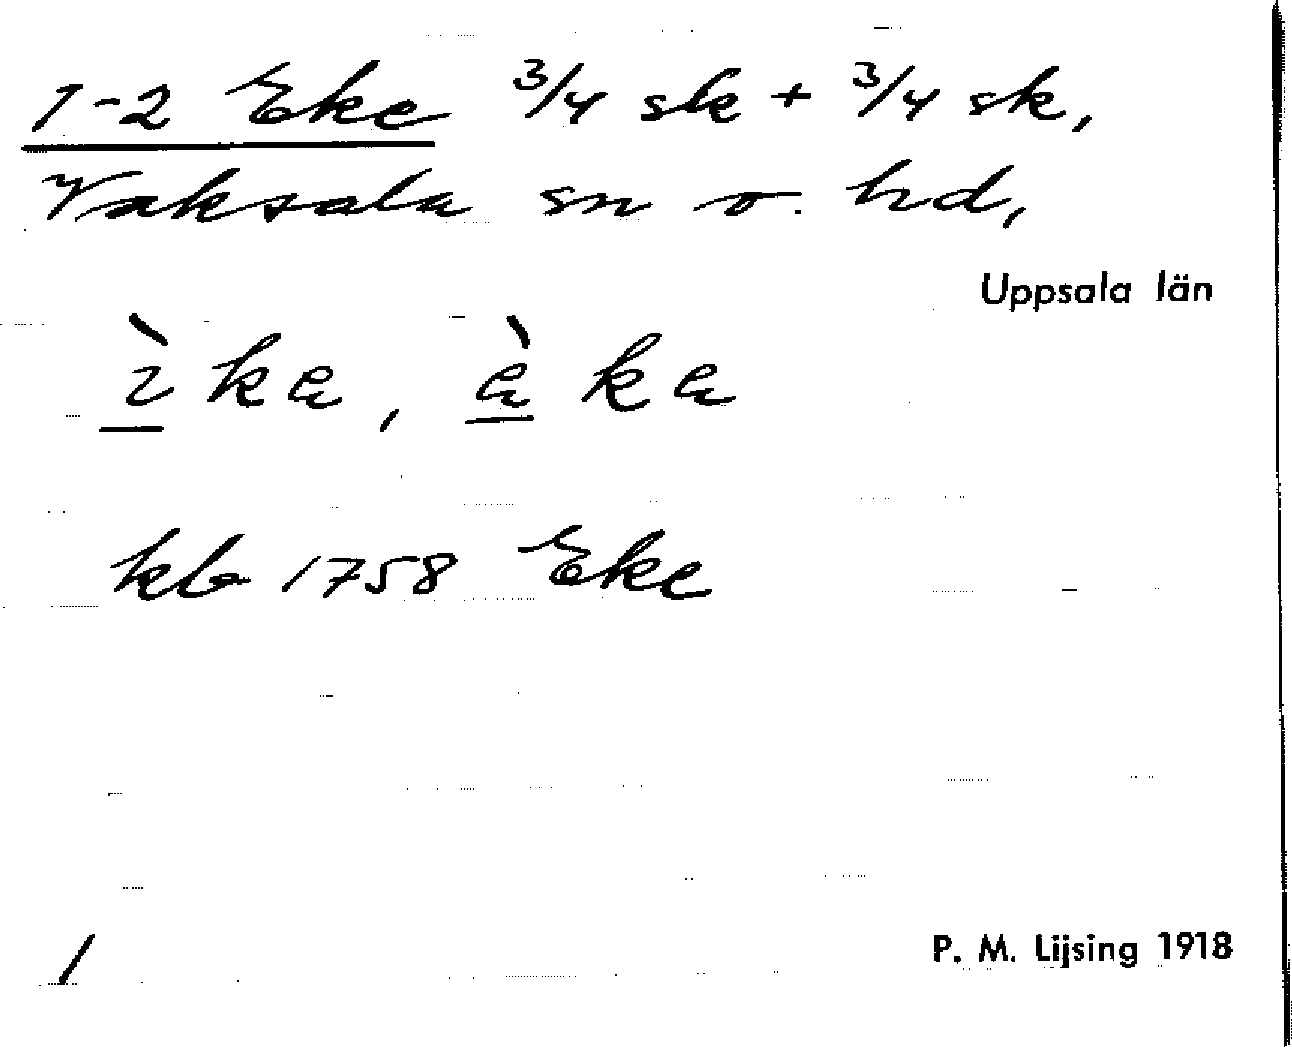 1-2 Eke 3/4 sk + 3/4 sk,
Vaksala sn o. hd,
Uppsala län
ı̀kę, ę̀kę
kb 1758 Eke
1
P. M. Lijsing 1918